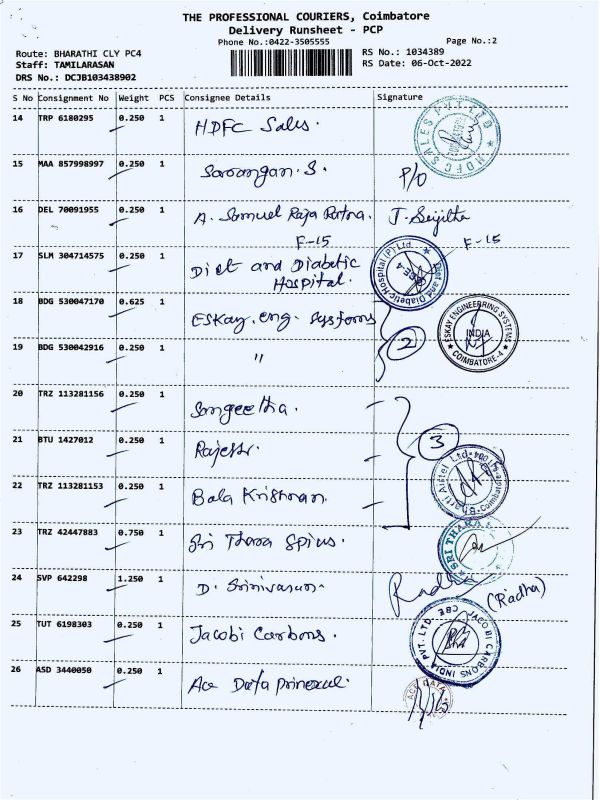 THE PROFESSIONAL COURIERS, Coimbatore
Delivery Runsheet - PCP
Phone No.:0422-3505555
Page No.:2
Route: BHARATHI CLY PC4
RS No.: 1034389
Staff: TAMILARASAN
RS Date: 06-Oct-2022
DRS No.: DCJB103438902
S No Consignment No Weight PCS Consignee Details Signature
14 TRP 6180295 0.250 1 HDFC Sales. HDFC SALES PVT LTD
15 MAA 857998997 0.250 1 Sarangan. S. P/O
16 DEL 70091955 0.250 1 A. Samuel Raja Ratna. J.
F-15 F-15
17 SLM 304714575 0.250 1 Diet and Diabetic
Hospital. Diet and Diabetic Hospital (P) Ltd.
18 BDG 530047170 0.625 1 ESKay. eng. Systems
2 ESKAY ENGINEERING SYSTEMS INDIA COIMBATORE-4
19 BDG 530042916 0.250 1 "
20 TRZ 113281156 0.250 1 Sangeetha.
21 BTU 1427012 0.250 1 Rajesh. 3
22 TRZ 113281153 0.250 1 Bala Krishnan. Bharti Airtel Ltd. Coimbatore
23 TRZ 42447883 0.750 1 Sri Thara Spins. SRI THARA
24 SVP 642298 1.250 1 D. Srinivasan. Radha (Radha)
25 TUT 6198303 0.250 1 Jacobi Carbons. JACOBI CARBONS INDIA PVT. LTD. CBE
26 ASD 3440050 0.250 1 Ace Data ACE DATA